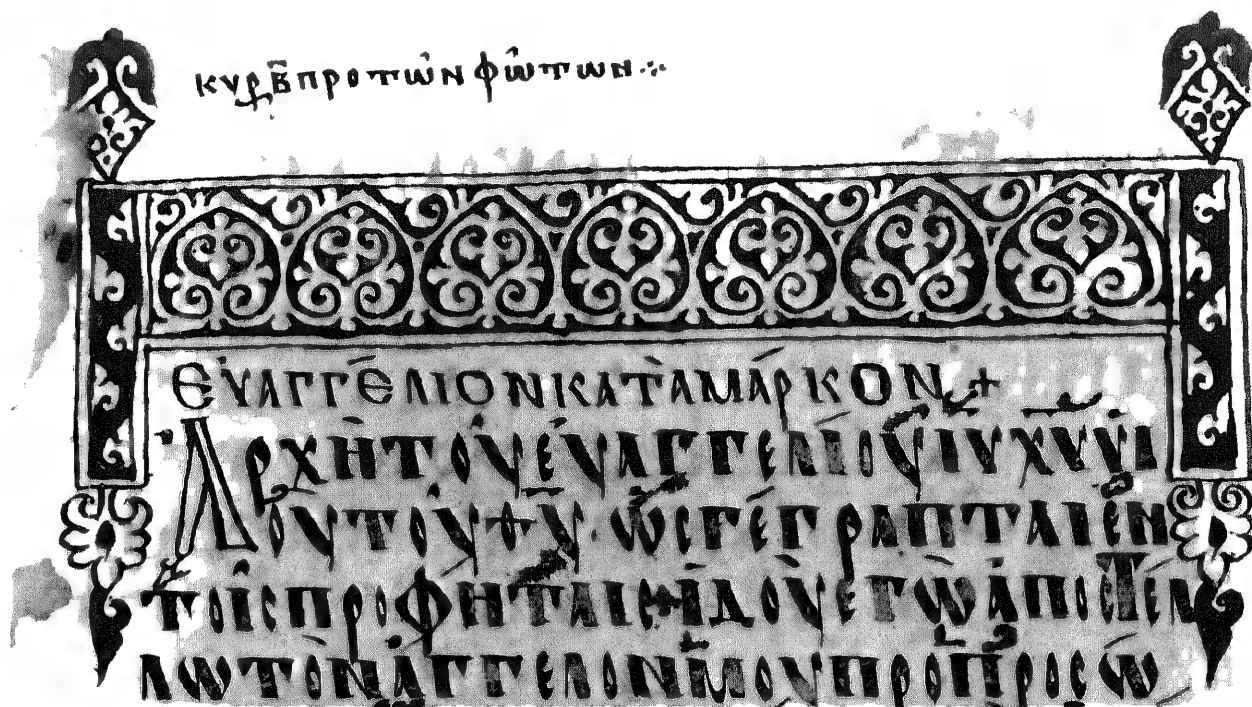 κυρ β προ τῶν φώτων
ΕΥΑΓΓΕΛΙΟΝ ΚΑΤΑ ΜΑΡΚΟΝ +
Ἀρχὴ τοῦ εὐαγγελίου ιυ χυ υἱ
οῦ τοῦ θυ · ὡς γέγραπται ἐν
τοῖς προφήταις + ἰδοὺ ἐγὼ ἀποστέλ
λω τὸν ἄγγελον μου πρὸ προσώ